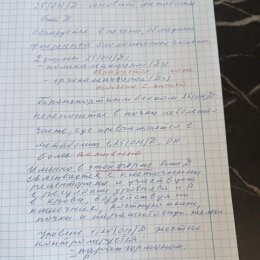 25(OH)D - основной метаболит
вит D
образуется в печени, обладает
умеренной биологической
2 формы 25(OH)D:
- холекальциферол (D3)
образуется в коже
- эргокальциферол (D2)
транспортным белком 25(OH)D
переносится в почки
где превращается в
метаболит 1,25(OH)2D. Он
более активный
Именно в этой форме вит D
связывается с клеточными
рецепторами и участвует
в регуляции уровня Ca и P
в крови, воздействуя на
кишечник, костную ткань,
почки и паращитовидн. железы
Уровень 1,25(OH)2D жестко
контролируется
- паратгормоном,
P